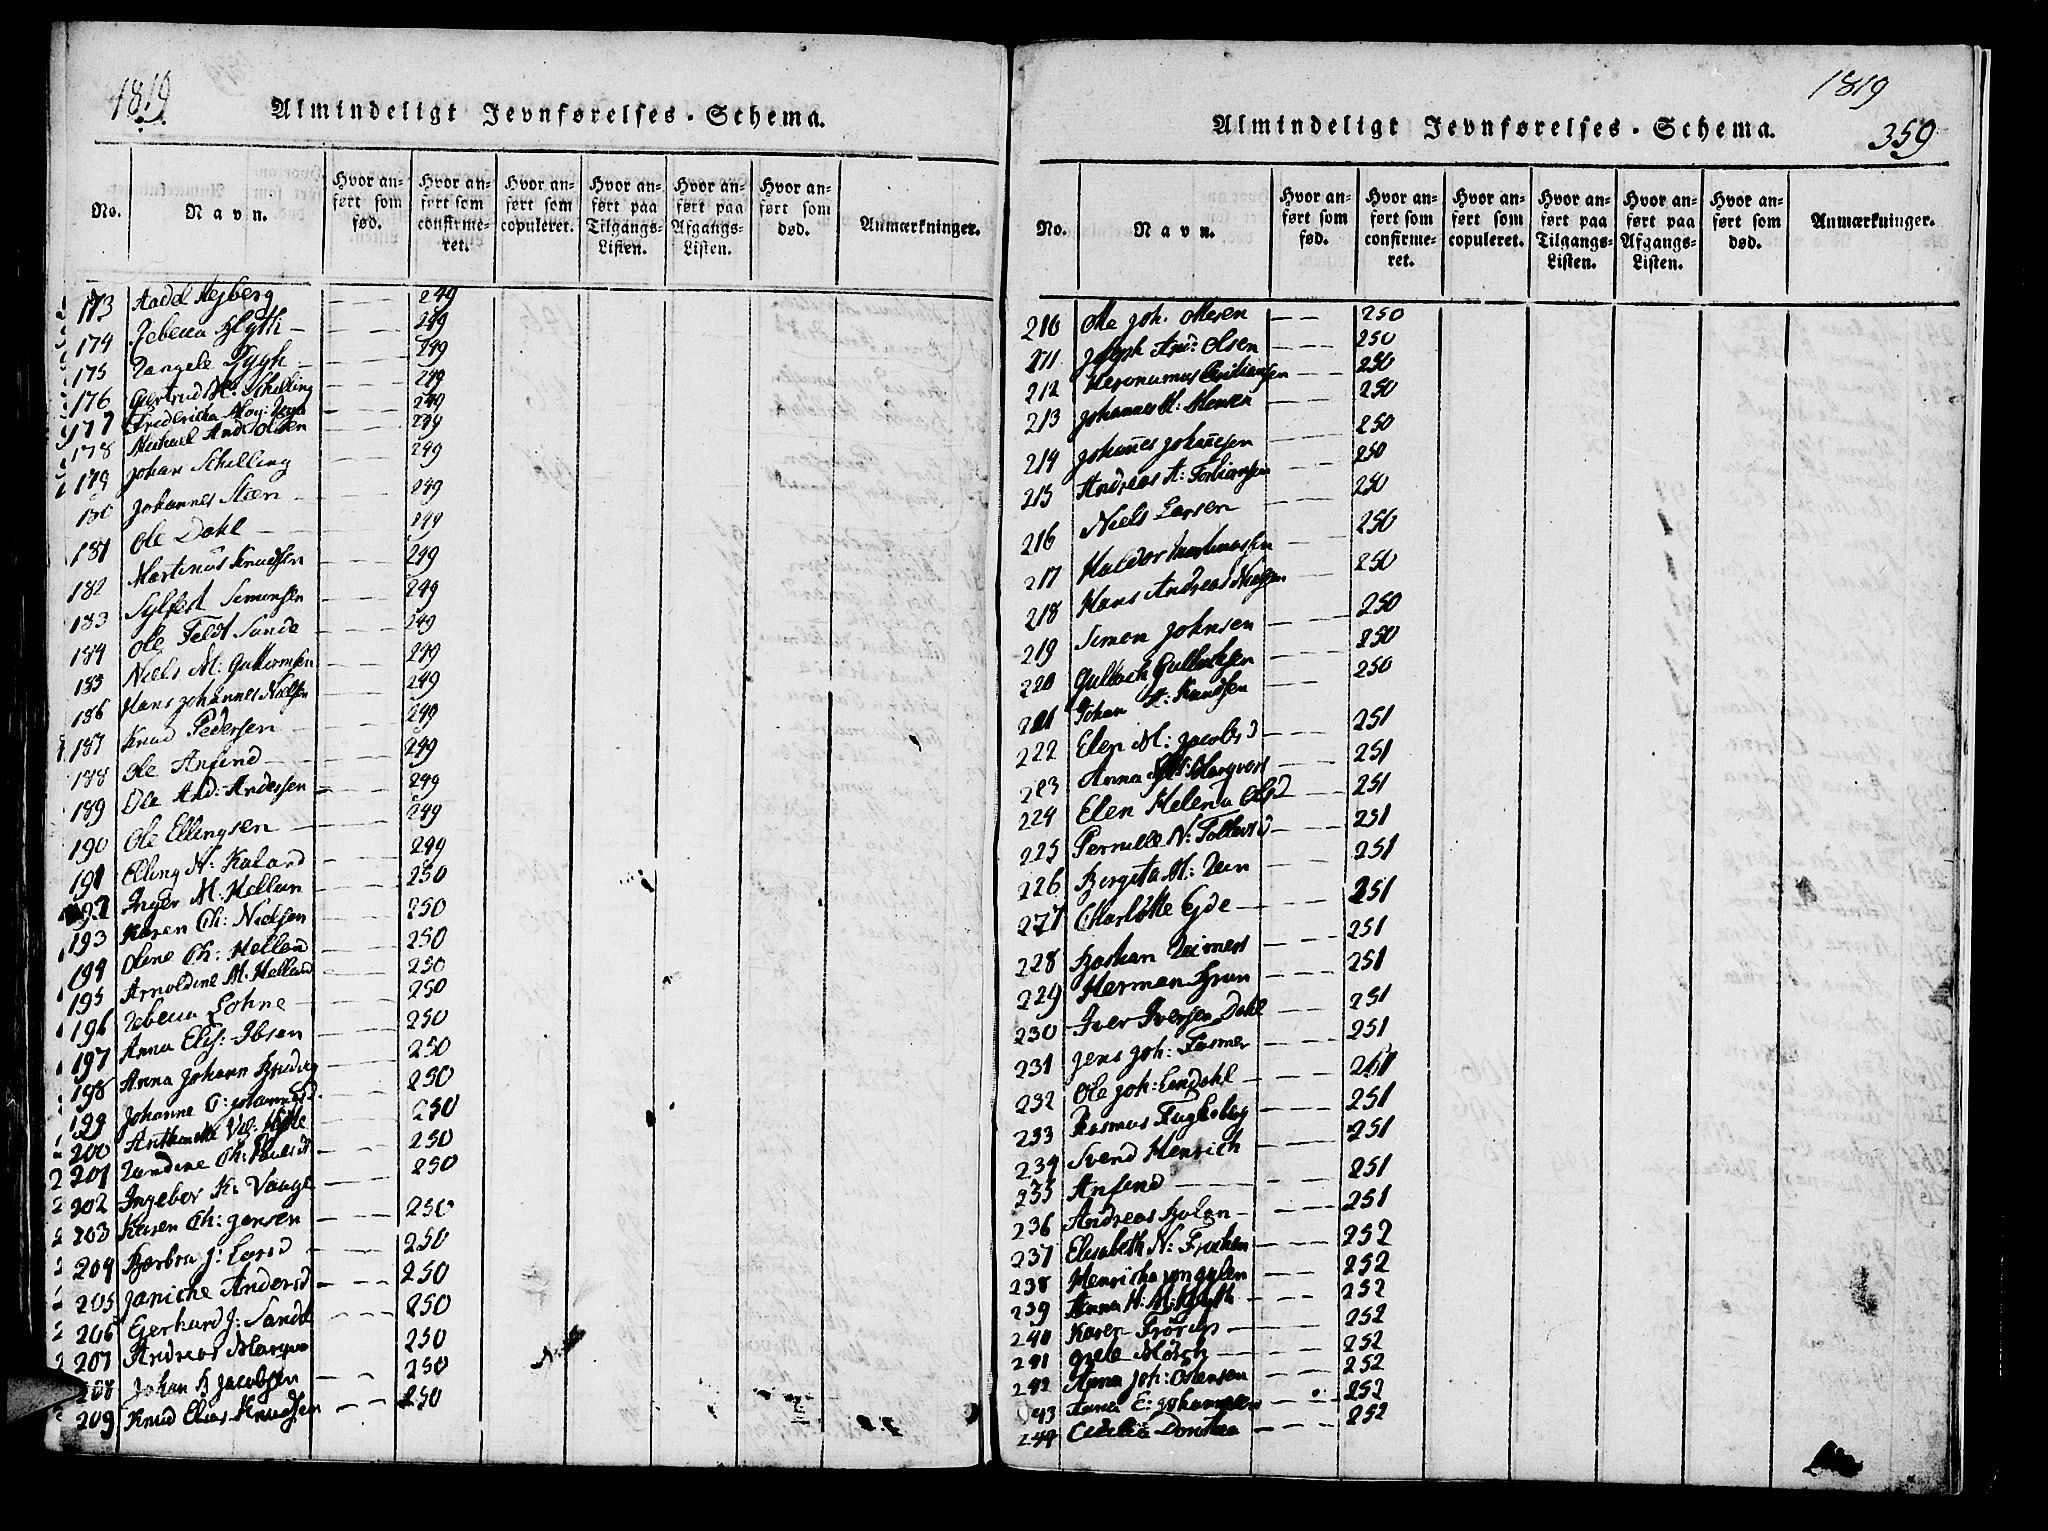 1819
Almindeligt Jevnførelses-Schema.
No.
Navn.
Hvor anført som fød.
Hvor anført som confirmeret.
Hvor anført som copuleret.
Hvor anført paa Tilgangs-Listen.
Hvor anført paa Afgangs-Listen.
Hvor anført som død.
Anmærkninger.
173 249
174 249
175 249
176 Gertrud M: Schilling 249
177 249
178 Michael And: Olsen 249
179 Johan Schilling 249
180 Johannes Steen 249
181 Ole Dahl 249
182 Martinus Knudsen 249
183 Sylfest Simensen 249
184 Ole Feldt Sunde 249
185 Niels M: Guttormsen 249
186 Hans Johannes Nielsen 249
187 Knud Pedersen 249
188 Ole Anfind 249
189 Ole And: Andersen 249
190 Ole Ellingsen 249
191 Elling N: Kaland 249
192 Inger M: Hellen 250
193 Karen Ch: Nielsen 250
194 Oline Ch: Helland 250
195 Arnoldine M: Helland 250
196 Rebecca Lohne 250
197 Anna Elis: Ibsen 250
198 Anna Johann 250
199 Johanne 250
200 250
201 250
202 Ingebor K: 250
203 Karen Ch: Jensen 250
204 Barbra J: Larsd 250
205 Janiche Andersd 250
206 Gerhard J: Sandal 250
207 Andreas 250
208 Johan B Jacobsen 250
209 Knud Elias Knudsen 250
1819
359
Almindeligt Jevnførelses-Schema.
No.
Navn.
Hvor anført som fød.
Hvor anført som confirmeret.
Hvor anført som copuleret.
Hvor anført paa Tilgangs-Listen.
Hvor anført paa Afgangs-Listen.
Hvor anført som død.
Anmærkninger.
210 Ole Joh. Olesen 250
211 Joseph And: Olsen 250
212 Heronimus 250
213 Johannes H: Monsen 250
214 Johannes Johannesen 250
215 Andreas A: 250
216 Niels Larsen 250
217 Haldor Mortinussen 250
218 Hans Andreas 250
219 Simon Johnsen 250
220 Gullach Gullachsen 250
221 Johan A: Knudsen 250
222 Elen M: Jacobsd 251
223 Anna 251
224 Elen Helena Olsd 251
225 Pernille N: 251
226 Bergita M: 251
227 Charlotte Eyde 251
228 251
229 Herman Brun 251
230 Iver Iversen Dahl 251
231 Jens Joh: Fasmer 251
232 Ole Joh: Lindahl
233 Rasmus 251
234 Svend Henrich 251
235 Anfind 251
236 Andreas Bolan 251
237 Elisabeth N: 252
238 252
239 Anna H: M: 252
240 Karen 252
241 252
242 Anna Joh: Olensen 252
43 Anna E: 252
244 Cicilia Dorthea 252